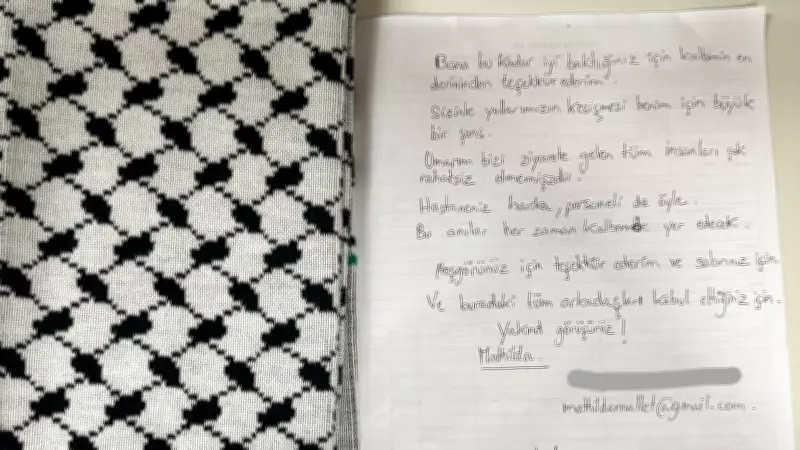 Bana bu kadar iyi baktığınız için kalbimin en
derininden teşekkür ederim.
Sizinle yollarımızın kesişmesi benim için büyük
bir şans.
Umarım bizi ziyarete gelen tüm insanları çok
rahatsız etmemişzdir.
Hastaneniz harika, personeli de öyle.
Bu anılar her zaman kalbimde yer edecek.
Hoşgörünüz için teşekkür ederim ve sabrınız için
Ve buradaki tüm arkadaşları kabul ettiğiniz için.
Yakında görüşürüz!
Mathilda
mathildamallet@gmail.com.